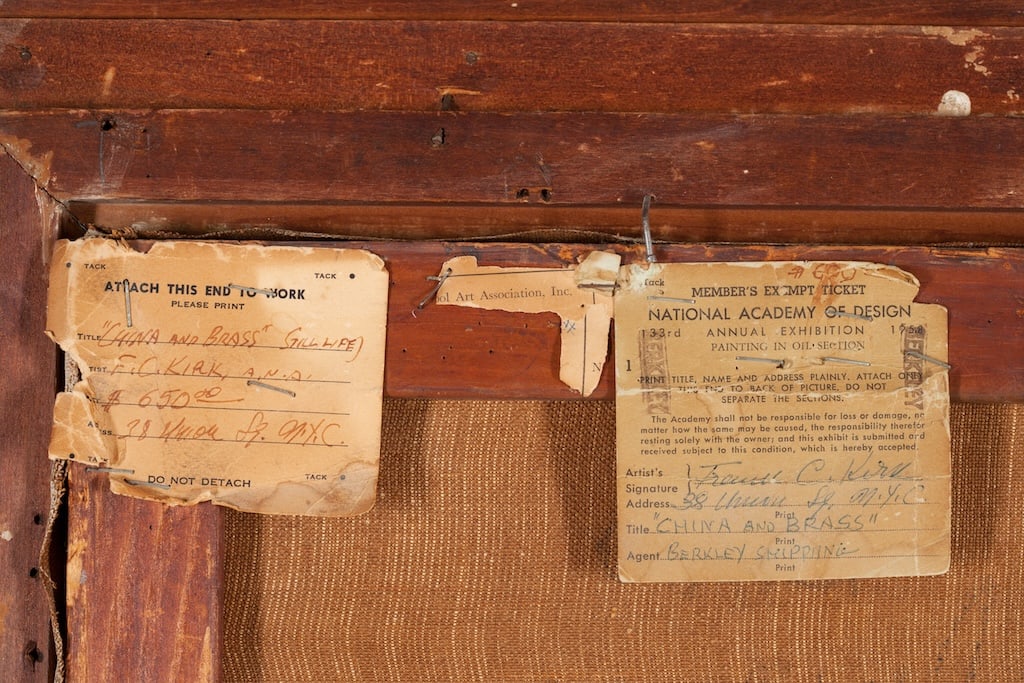 TACK
TACK
ATTACH THIS END TO WORK
PLEASE PRINT
Title "CHINA AND BRASS" STILL LIFE)
F.C. KIRK, A.N.A.
$ 650 00
38 Union Sq. N.Y.C.
TACK
TACK
DO NOT DETACH
ool Art Association, Inc.
x
N
Tack
MEMBER'S EXEMPT TICKET
NATIONAL ACADEMY OF DESIGN
133rd ANNUAL EXHIBITION 1958
PAINTING IN OIL SECTION
1
PRINT TITLE, NAME AND ADDRESS PLAINLY, ATTACH ONLY
THIS END TO BACK OF PICTURE, DO NOT
SEPARATE THE SECTIONS.
BERKLEY
BERKLEY
The Academy shall not be responsible for loss or damage, no
matter how the same may be caused, the responsibility therefor
resting solely with the owner; and this exhibit is submitted and
received subject to this condition, which is hereby accepted.
Artist's
Signature } Frank C. Kirk
Address 38 Union Sq. N.Y.C.
Print
Title "CHINA AND BRASS"
Print
Agent BERKLEY SHIPPING
Print